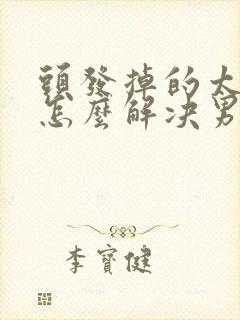 頭發掉的太
怎麼解決男
李寶健